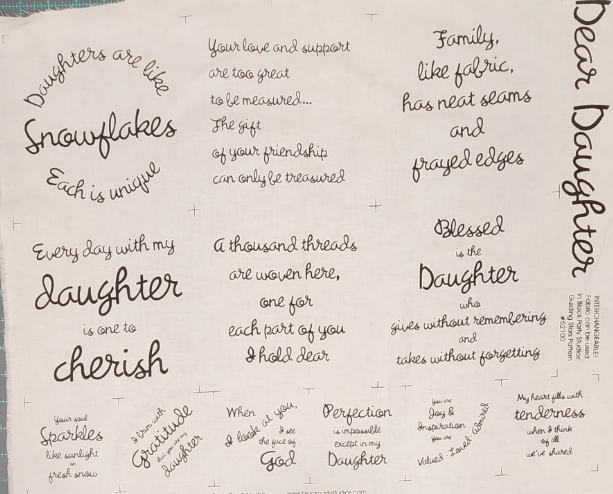 Daughters are like
Snowflakes
Each is unique
Your love and support
are too great
to be measured...
The gift
of your friendship
can only be treasured
Family,
like fabric,
has neat seams
and
frayed edges
Dear Daughter
Every day with my
daughter
is one to
cherish
A thousand threads
are woven here,
one for
each part of you
I hold dear
Blessed
is the
Daughter
who
gives without remembering
and
takes without forgetting
INTERCHANGEABLE!
Fabric can be used
in Block Party Studios'
Guiding Stars Pattern
#82100
Your soul
Sparkles
like sunlight
on
fresh snow
I brim with
Gratitude
that you are my
daughter
When
I look at you,
I see
the face of
God
Perfection
is impossible
except in my
Daughter
You are
Joy &
Inspiration
You are
Valued · Loved · Admired
My heart fills with
tenderness
when I think
of all
we've shared